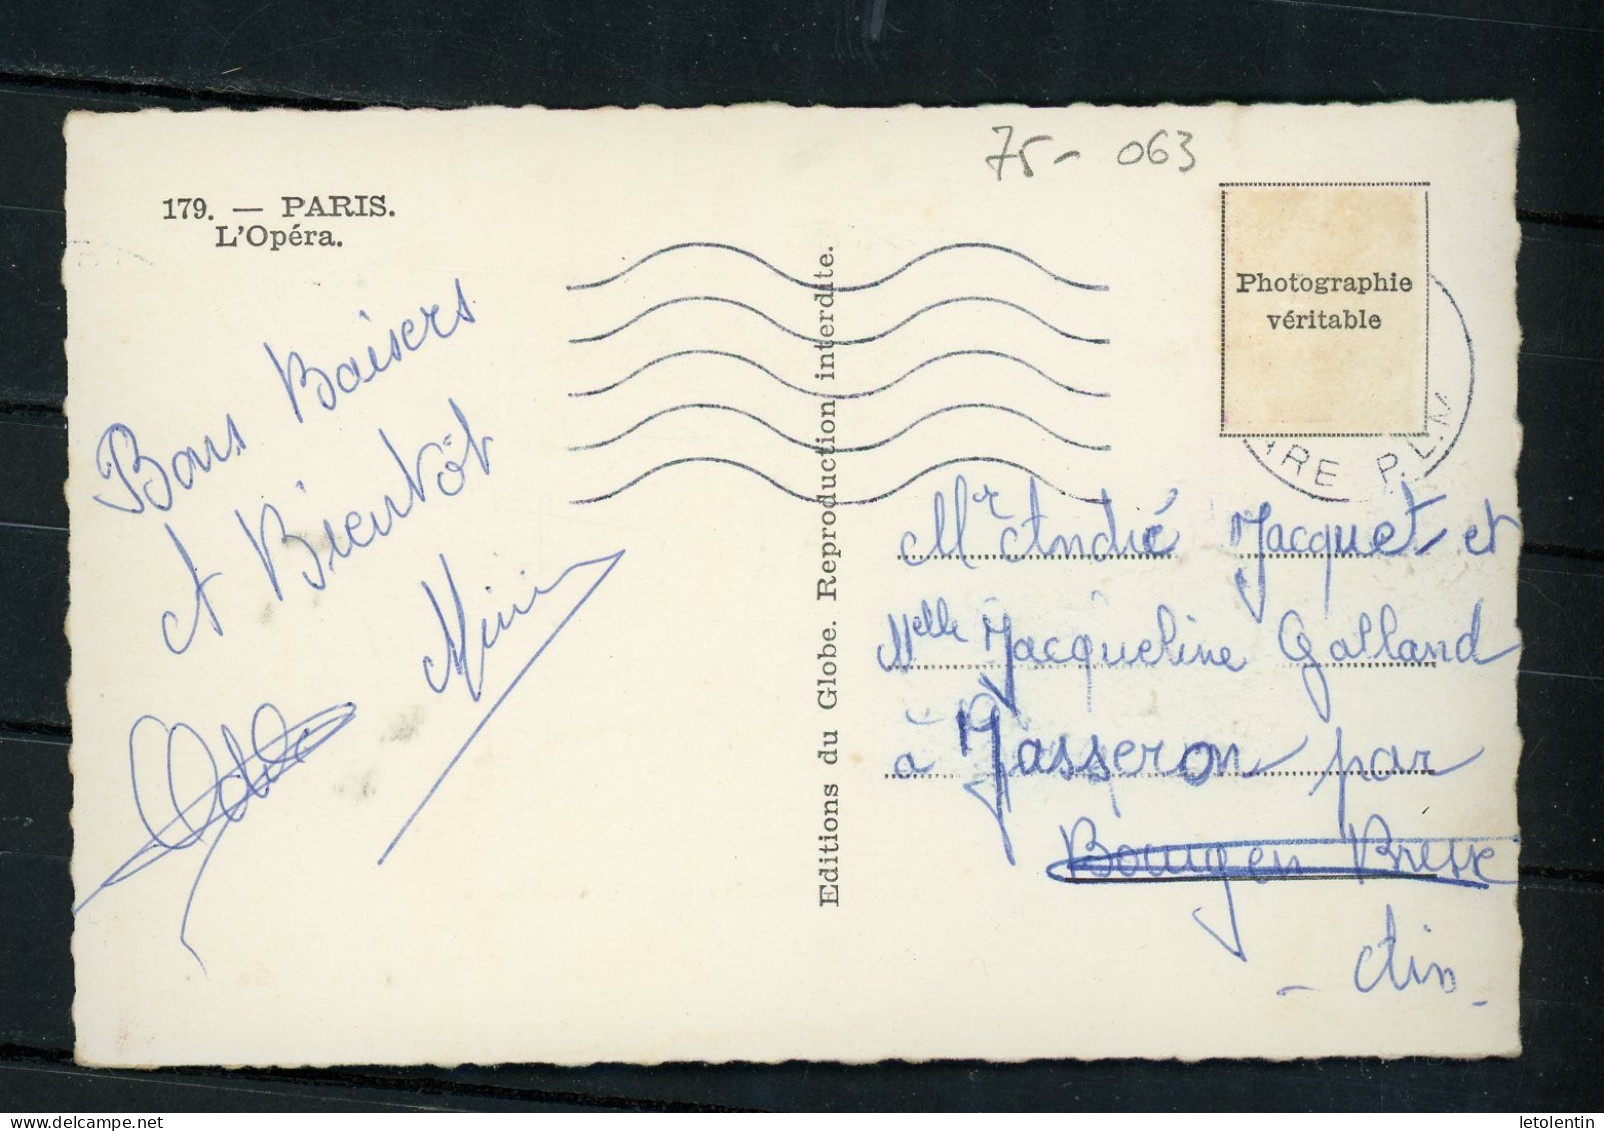 75- 063
179. — PARIS.
L'Opéra.
Photographie
véritable
ARE P.L.M
Bons Baisers
A Bientôt
Mimi
Odile
Editions du Globe. Reproduction interdite.
Mr André Jacquet et
Melle Jacqueline Galland
à Jasseron par
Bourg en Bresse
- Ain -
letolentin